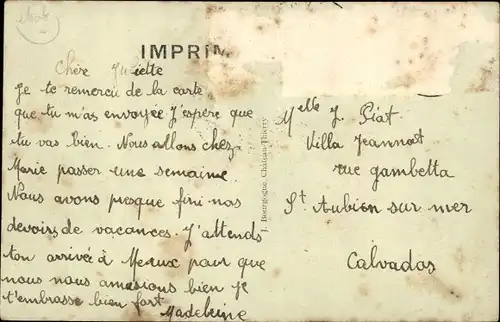 IMPRIM
Chère Juliette
Je te remercie de la carte
que tu m'as envoyée J'espère que
tu vas bien. Nous allons chez
Marie passer une semaine.
Nous avons presque fini nos
devoirs de vacances. J'attends
ton arrivée à Meaux pour que
nous nous amusions bien je
t'embrasse bien fort
Madeleine
J. Bourgogne, Château-Thierry
Melle J. Piat
Villa Jeannot
rue gambetta
St Aubien sur mer
Calvados